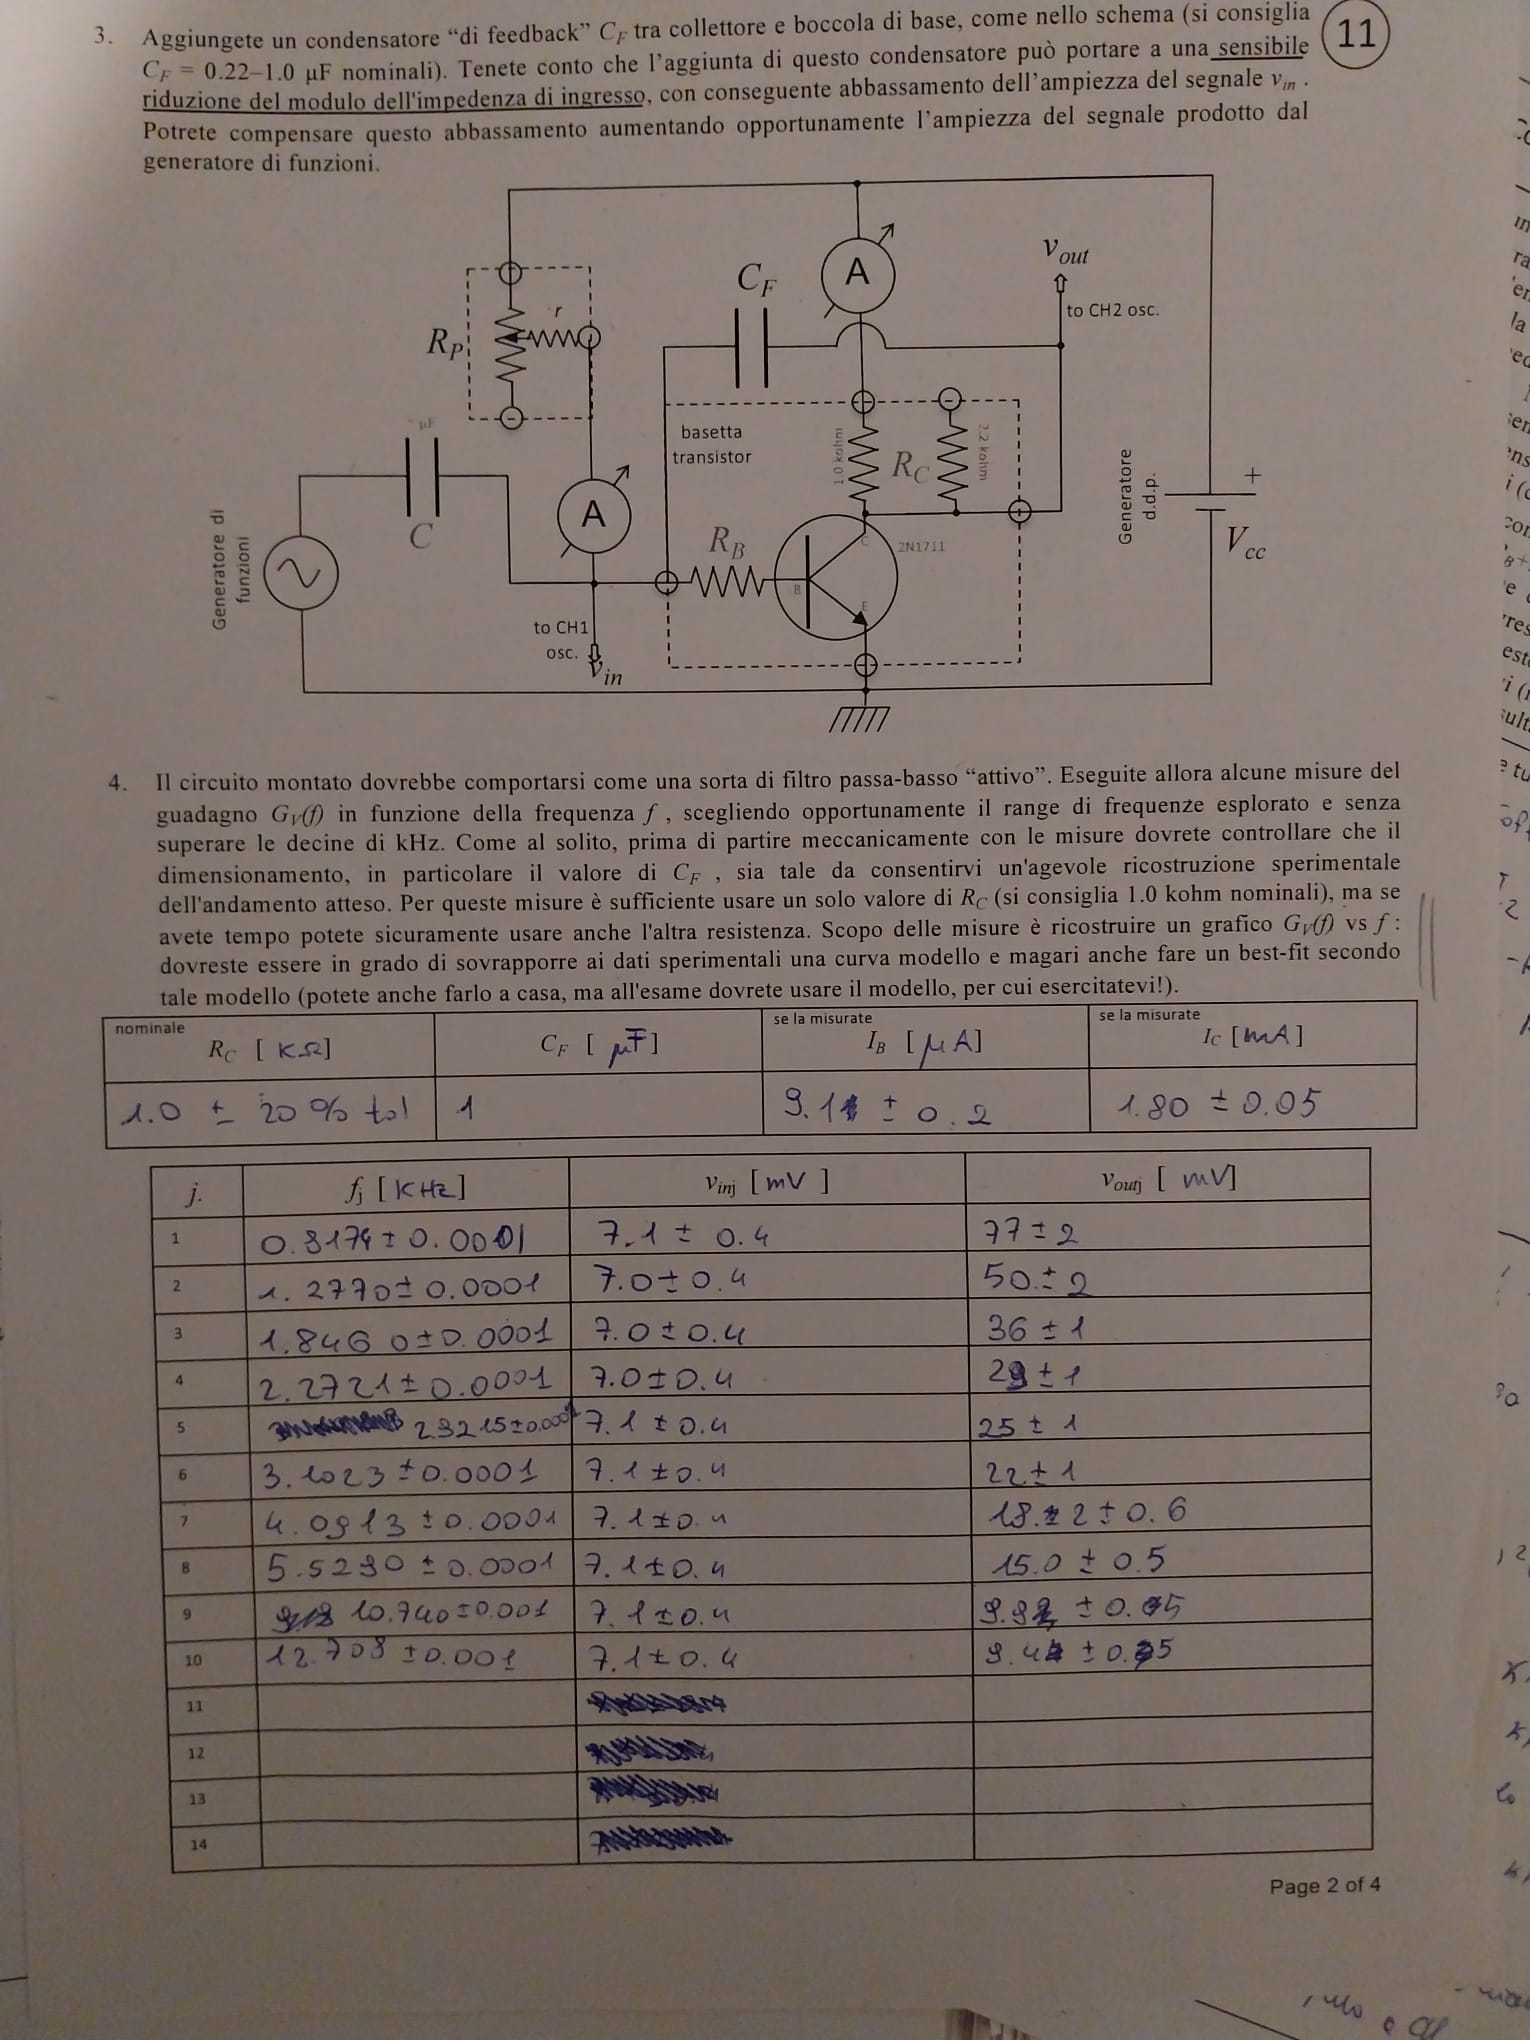 3. Aggiungete un condensatore “di feedback” CF tra collettore e boccola di base, come nello schema (si consiglia
11
CF = 0.22–1.0 µF nominali). Tenete conto che l’aggiunta di questo condensatore può portare a una sensibile
riduzione del modulo dell'impedenza di ingresso, con conseguente abbassamento dell’ampiezza del segnale vin .
Potrete compensare questo abbassamento aumentando opportunamente l’ampiezza del segnale prodotto dal
generatore di funzioni.
vout
to CH2 osc.
CF
A
RP
r
µF
C
basetta
transistor
1.0 kohm
RC
2.2 kohm
Generatore
d.d.p.
+
Vcc
A
RB
C
2N1711
B
E
Generatore di
funzioni
to CH1
osc.
vin
4. Il circuito montato dovrebbe comportarsi come una sorta di filtro passa-basso “attivo”. Eseguite allora alcune misure del
guadagno GV(f) in funzione della frequenza f , scegliendo opportunamente il range di frequenze esplorato e senza
superare le decine di kHz. Come al solito, prima di partire meccanicamente con le misure dovrete controllare che il
dimensionamento, in particolare il valore di CF , sia tale da consentirvi un'agevole ricostruzione sperimentale
dell'andamento atteso. Per queste misure è sufficiente usare un solo valore di RC (si consiglia 1.0 kohm nominali), ma se
avete tempo potete sicuramente usare anche l'altra resistenza. Scopo delle misure è ricostruire un grafico GV(f) vs f :
dovreste essere in grado di sovrapporre ai dati sperimentali una curva modello e magari anche fare un best-fit secondo
tale modello (potete anche farlo a casa, ma all'esame dovrete usare il modello, per cui esercitatevi!).
nominale RC [ KΩ] CF [ µF] se la misurate IB [µA] se la misurate IC [mA]
1.0 ± 20 % tol 1 9.1 ± 0.2 1.80 ± 0.05
j. fj [KHz] vinj [mV ] voutj [ mV]
1 0.8174 ± 0.0001 7.1 ± 0.4 77 ± 2
2 1.2770 ± 0.0001 7.0 ± 0.4 50 ± 2
3 1.8460 ± 0.0001 7.0 ± 0.4 36 ± 1
4 2.2721 ± 0.0001 7.0 ± 0.4 29 ± 1
5 7.1 ± 0.4 25 ± 1
6 3.1023 ± 0.0001 7.1 ± 0.4 22 ± 1
7 4.0913 ± 0.0001 7.1 ± 0.4 18.2 ± 0.6
8 5.5290 ± 0.0001 7.1 ± 0.4 15.0 ± 0.5
9 10.740 ± 0.001 7.1 ± 0.4
10 12.708 ± 0.001 7.1 ± 0.4
11
12
13
14
Page 2 of 4